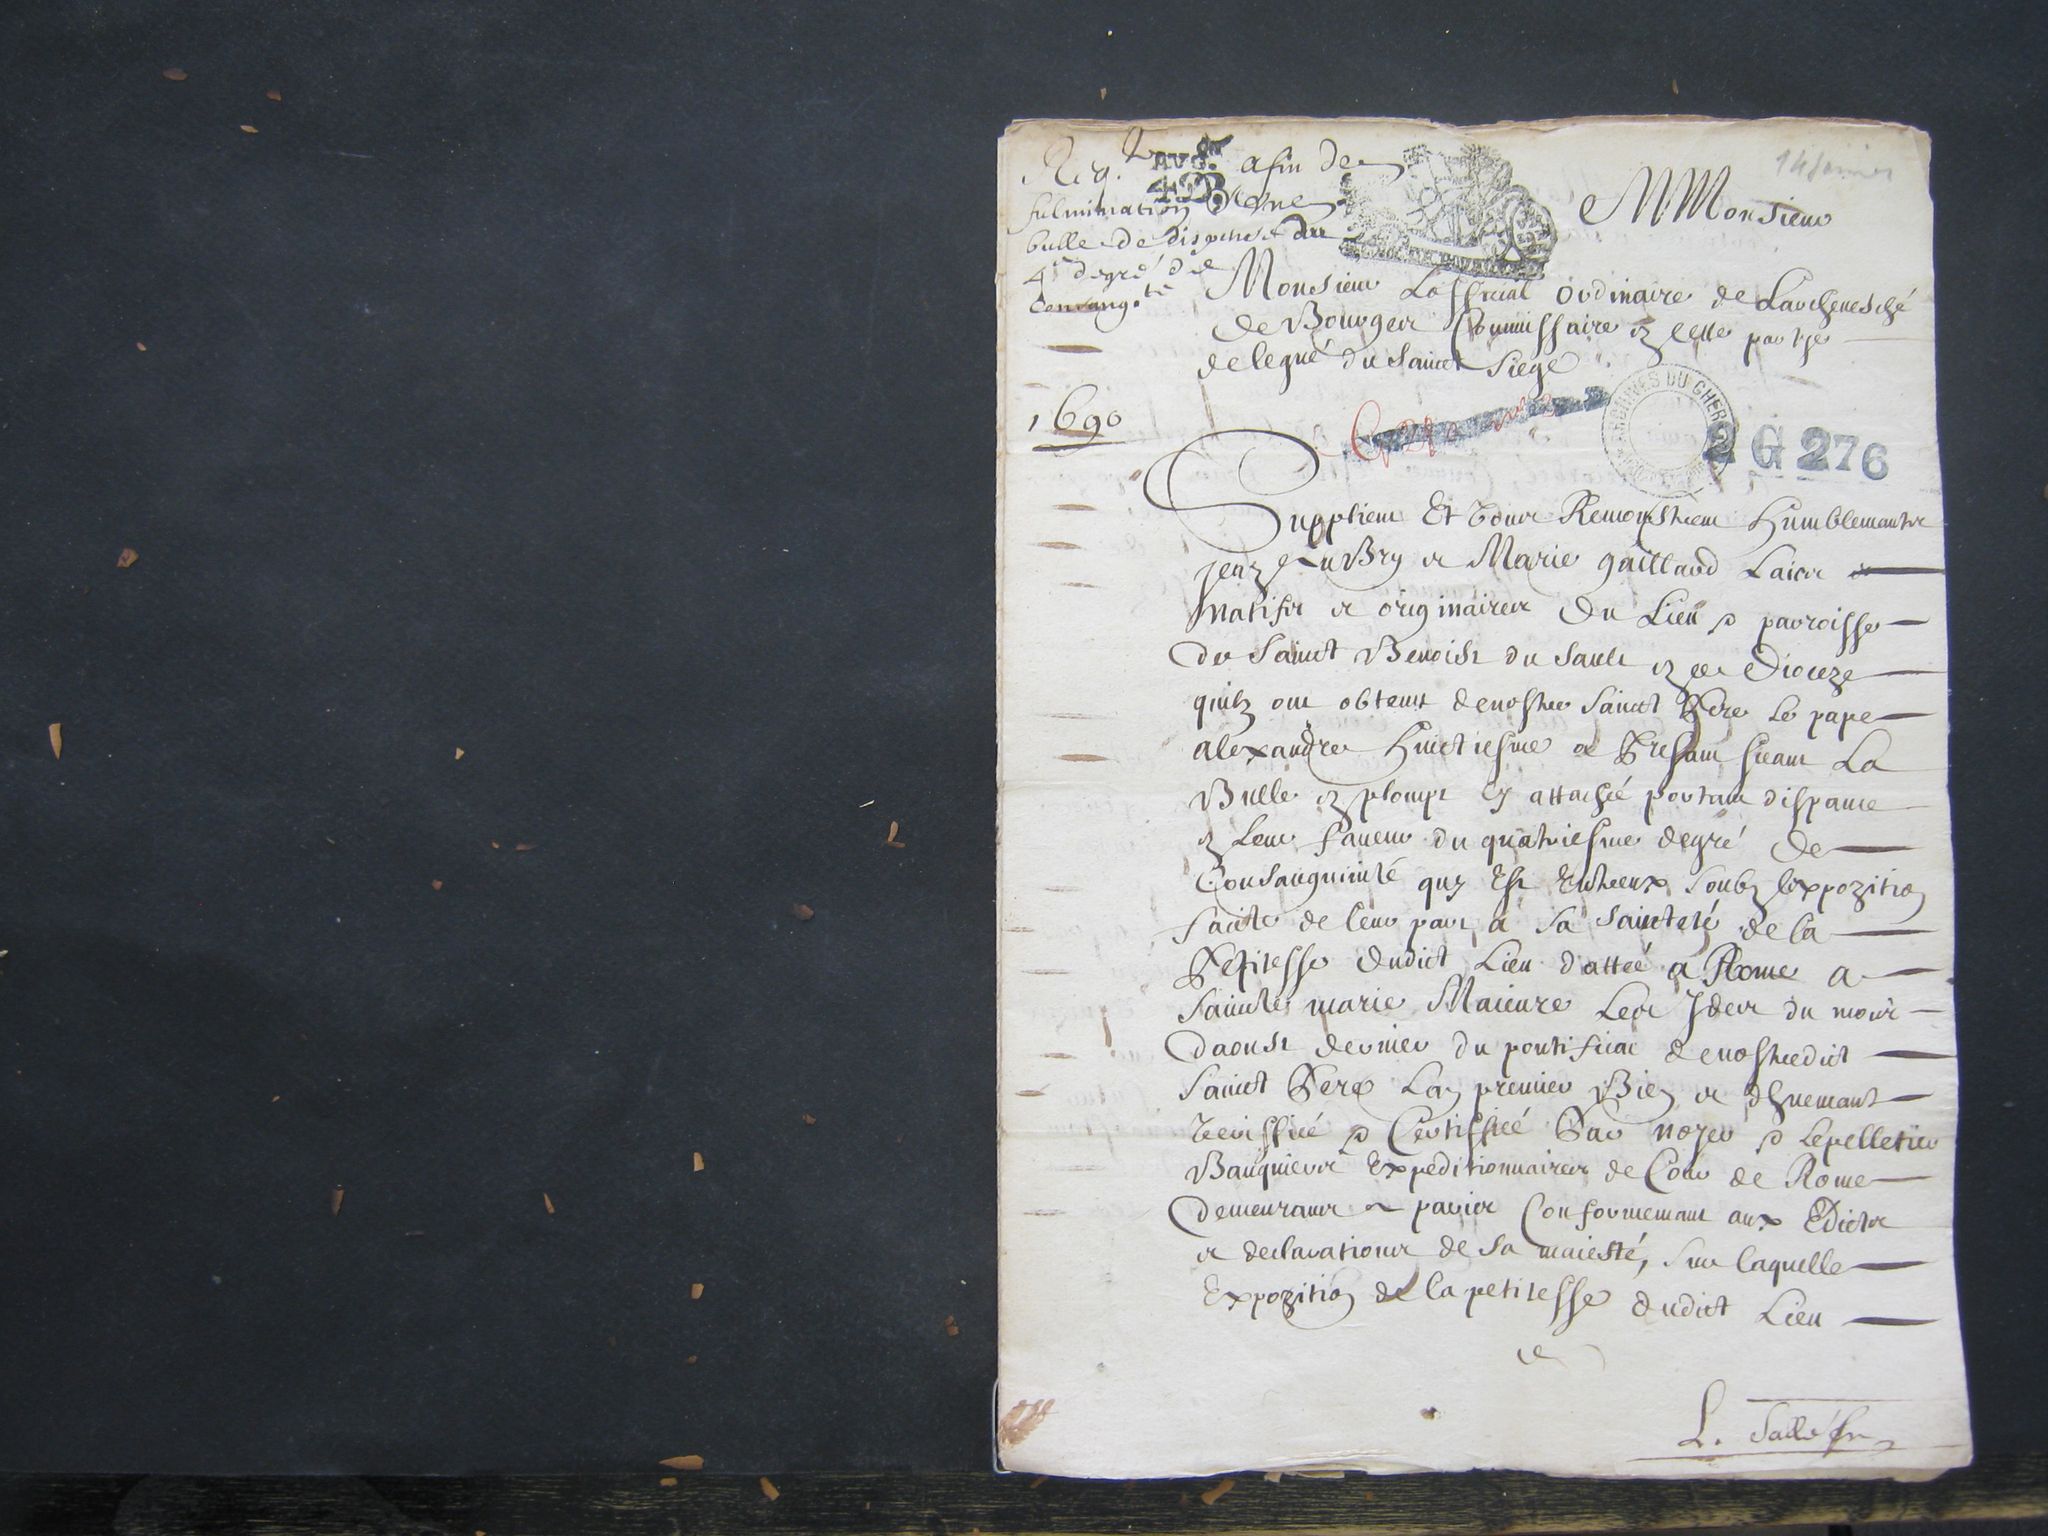 Req.te afin de
fulmination d'une
bulle de dispense du
4e degré de
consang.té
1690
14 Janvier
A Monsieur
Monsieur Lofficial ordinaire de Larchevesché
de Bourges Commissaire en cette partye
delegué du sainct siege
ARCHIVES DU CHER
2 G 276
Supplient Et vous Remonstrent humblemant
Jean Aubry et Marie gaillard Laics et
natifs et originaires du Lieu & parroisse
de sainct Benoist du sault en ce dioceze
quilz ont obtenu de nostre sainct Pere le pape
alexandre huictiesme a Presant seant La
Bulle en plomp cy attachée portant dispance
en leur faveur du quatriesme degré de
Consanguinité quy Est Entreux soubz lexpozition
faicte de leur part a sa saincteté de la
Petitesse dudict Lieu dattée a Rome a
saincte marie Maieure Les Ides du mois
daoust dernier du pontificat de nostredict
sainct Pere Lan premier Bien et dhuemant
veriffié & Certiffiée Par noyer & Lepelletier
Banquiers Expeditionnaires de Cour de Rome
demeurans a paris Conformemant aux Edicts
et declarations de sa maiesté, sur laquelle
Expozition de la petitesse dudict Lieu
L. Sallé